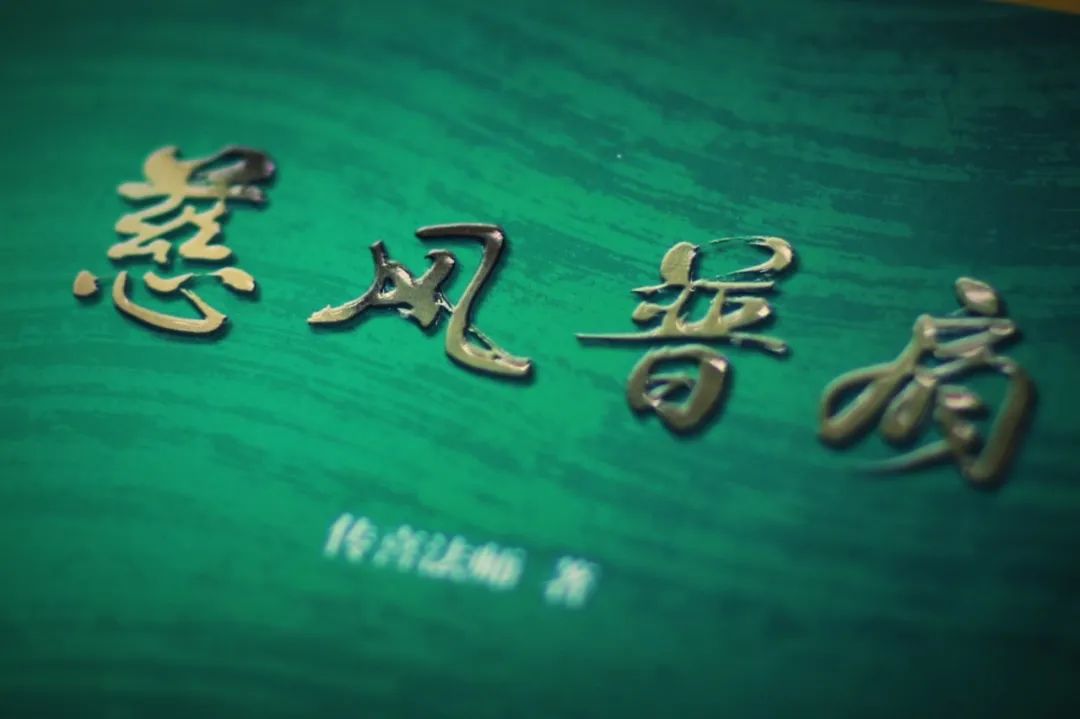 慈风普扇
传喜法师 著